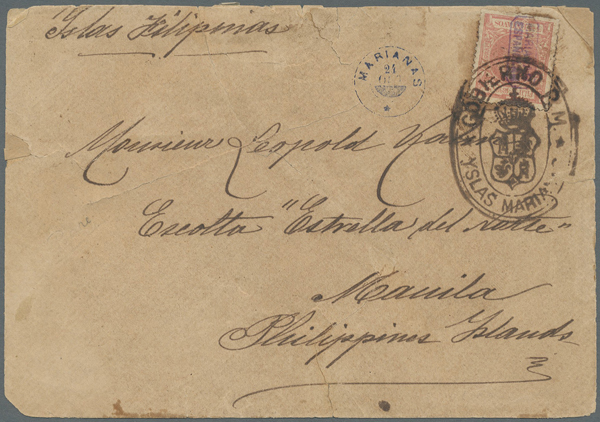 Islas Filipinas
MARIANAS
24
GOBIERNO P. M.
YSLAS MARIANAS
Monsieur Leopold
Escolta "Estrella del Norte"
Manila
Philippines Islands